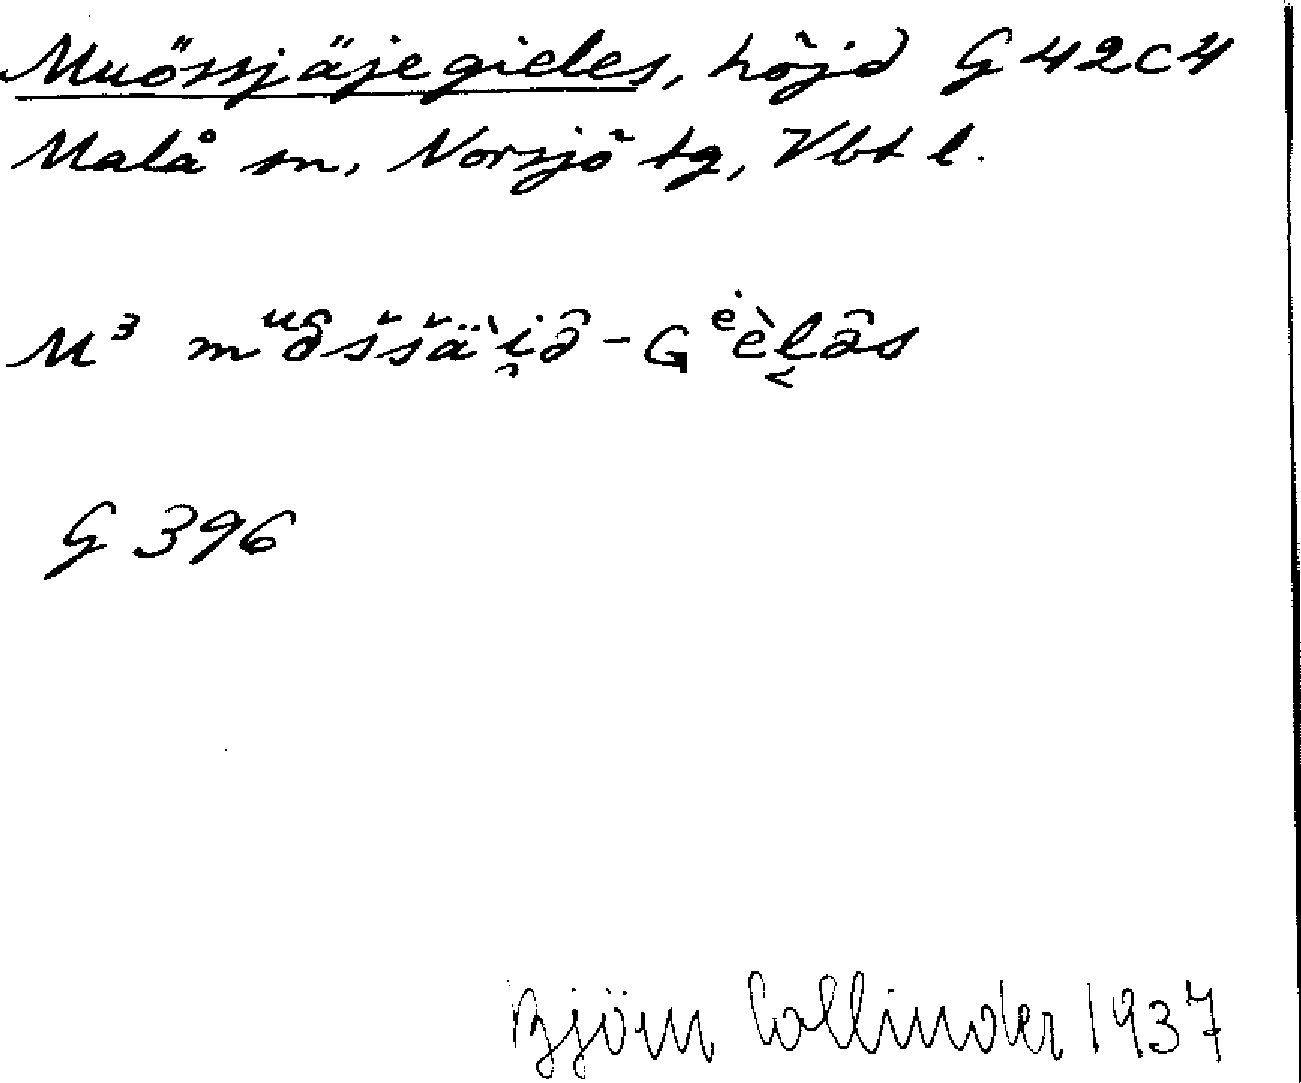 Muössjäjegieles, höjd G 42c4
Malå sn, Norsjö tg, Vbt l.
M³ mᵘô̆ššä̀i̯ə̂ - Gᵉ̇èl̬ə̂s
G 396
Björn Collinder 1937